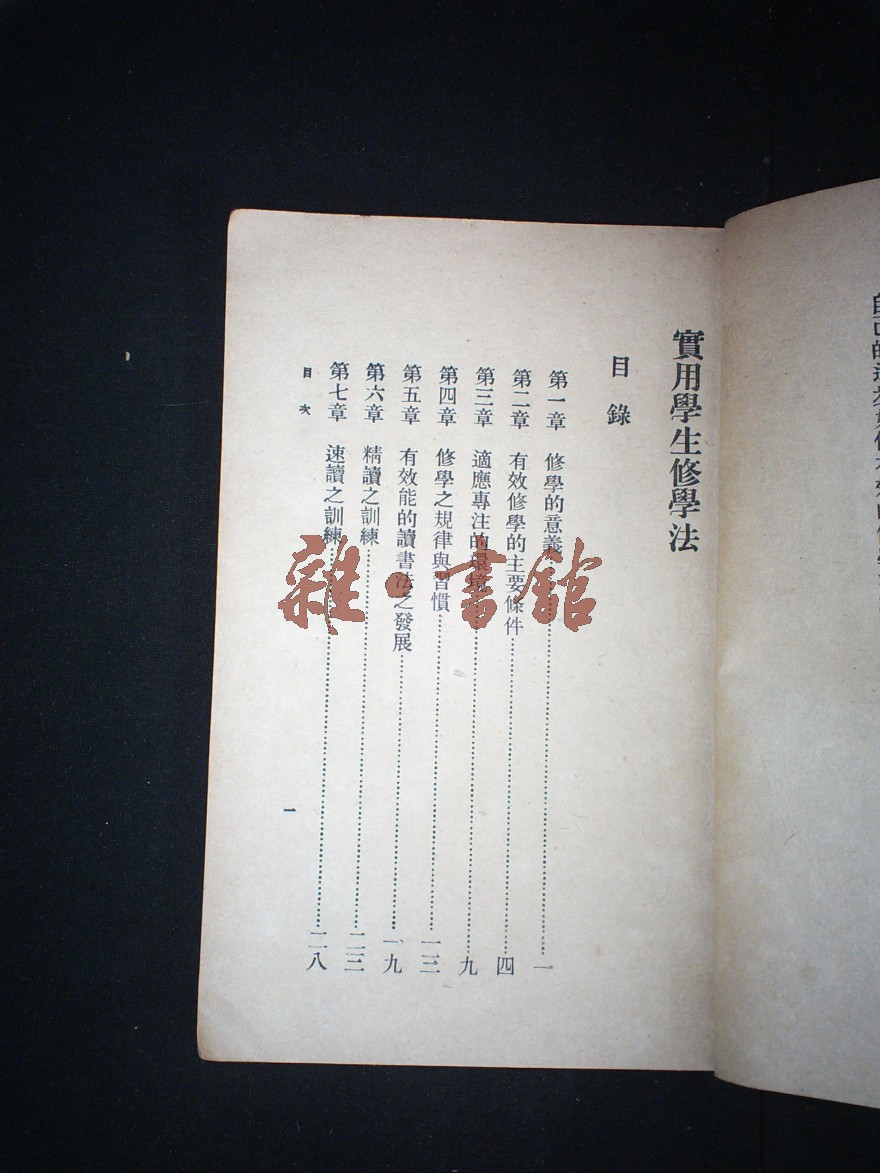 實用學生修學法
目錄
第一章 修學的意義 一
第二章 有效修學的主要條件 四
第三章 適應專注的環境 九
第四章 修學之規律與習慣 一三
第五章 有效能的讀書法之發展 一九
第六章 精讀之訓練 二三
第七章 速讀之訓練 二八
目次
一
雜·書館